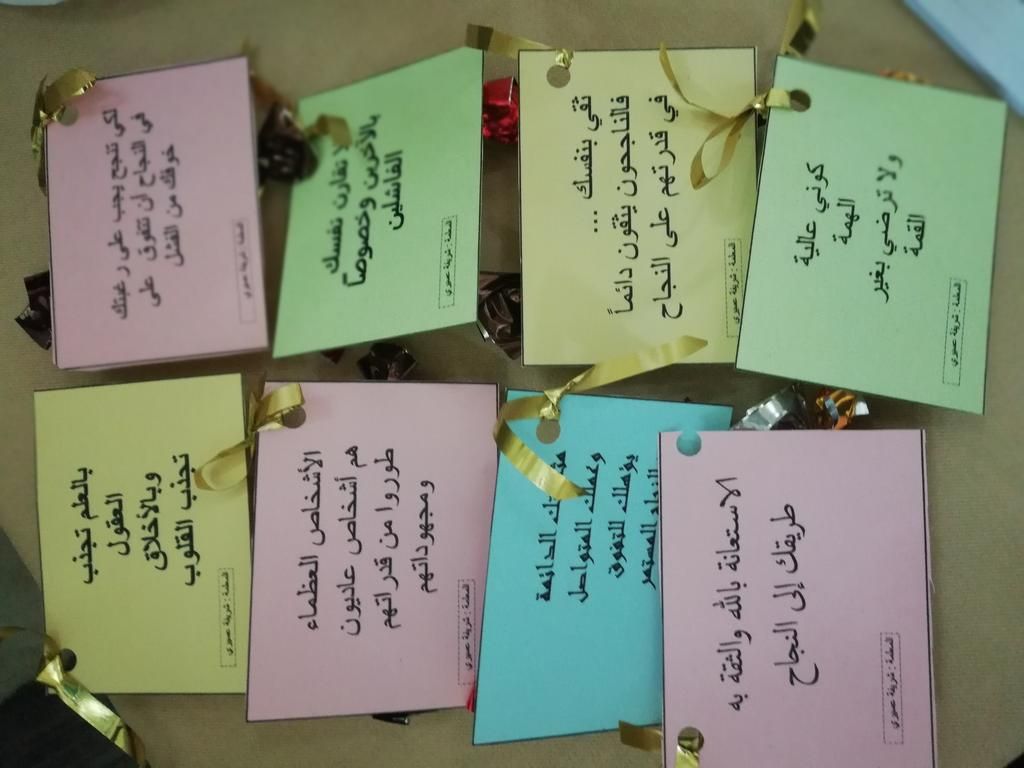 لكي تنجح يجب على رغبتك
في النجاح أن تتفوق على
خوفك من الفشل
المعلمة : شريفة عميري
لا تقارن نفسك
بالآخرين وخصوصاً
الفاشلين
المعلمة : شريفة عميري
ثقي بنفسك ...
فالناجحون يثقون دائماً
في قدرتهم على النجاح
المعلمة : شريفة عميري
كوني عالية
الهمة
ولا ترضي بغير
القمة
المعلمة : شريفة عميري
بالعلم تجذب
العقول
وبالأخلاق
تجذب القلوب
المعلمة : شريفة عميري
الأشخاص العظماء
هم أشخاص عاديون
طوروا من قدراتهم
ومجهوداتهم
المعلمة : شريفة عميري
الدائمة
وعملك المتواصل
يؤهلك للتفوق
المستمر
الاستعانة بالله والثقة به
طريقك إلى النجاح
المعلمة : شريفة عميري